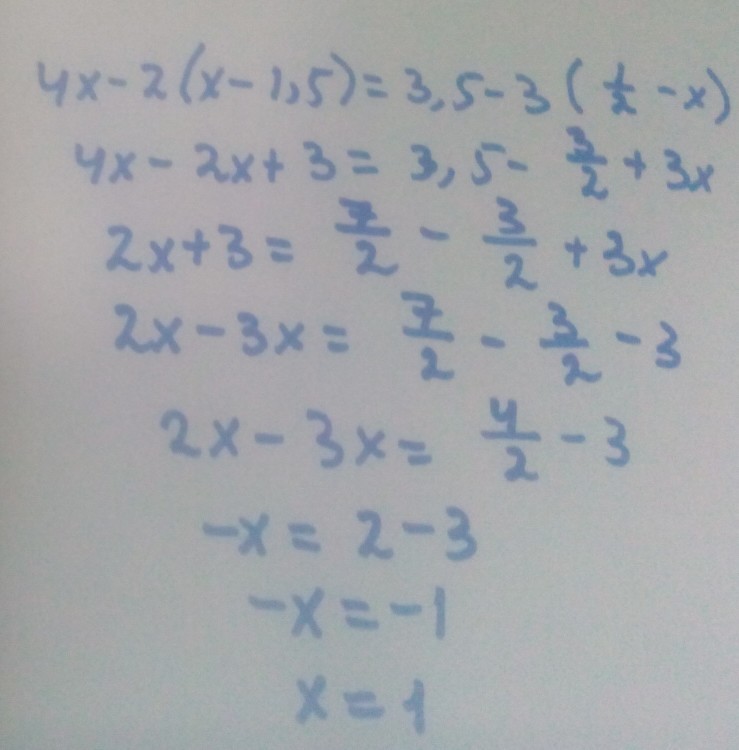 4x - 2(x - 1,5) = 3,5 - 3(1/2 - x)
4x - 2x + 3 = 3,5 - 3/2 + 3x
2x + 3 = 7/2 - 3/2 + 3x
2x - 3x = 7/2 - 3/2 - 3
2x - 3x = 4/2 - 3
-x = 2 - 3
-x = -1
x = 1